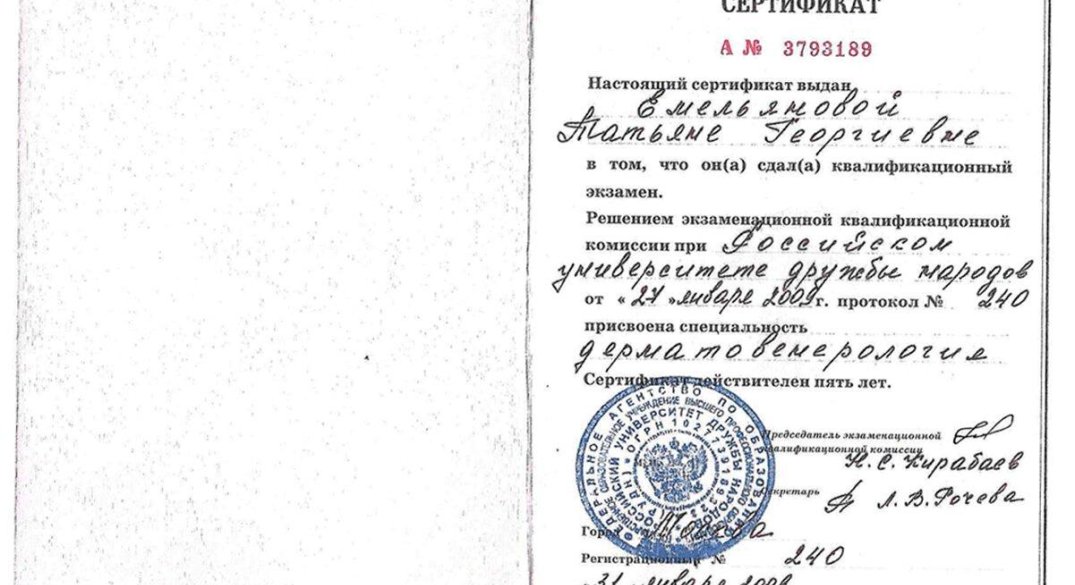 СЕРТИФИКАТ
А № 3793189
Настоящий сертификат выдан
Емельяновой
Татьяне Георгиевне
в том, что он(а) сдал(а) квалификационный
экзамен.
Решением экзаменационной квалификационной
комиссии при Российском
университете дружбы народов
от « 27 » января 2009 г. протокол № 240
присвоена специальность
дерматовенерология
Сертификат действителен пять лет.
ФЕДЕРАЛЬНОЕ АГЕНТСТВО ПО ОБРАЗОВАНИЮ
РОССИЙСКИЙ УНИВЕРСИТЕТ ДРУЖБЫ НАРОДОВ
Председатель экзаменационной
квалификационной комиссии
Н. С. Кирабаев
Секретарь Л. В. Рочева
Город Москва
Регистрационный № 240
31 января 2009